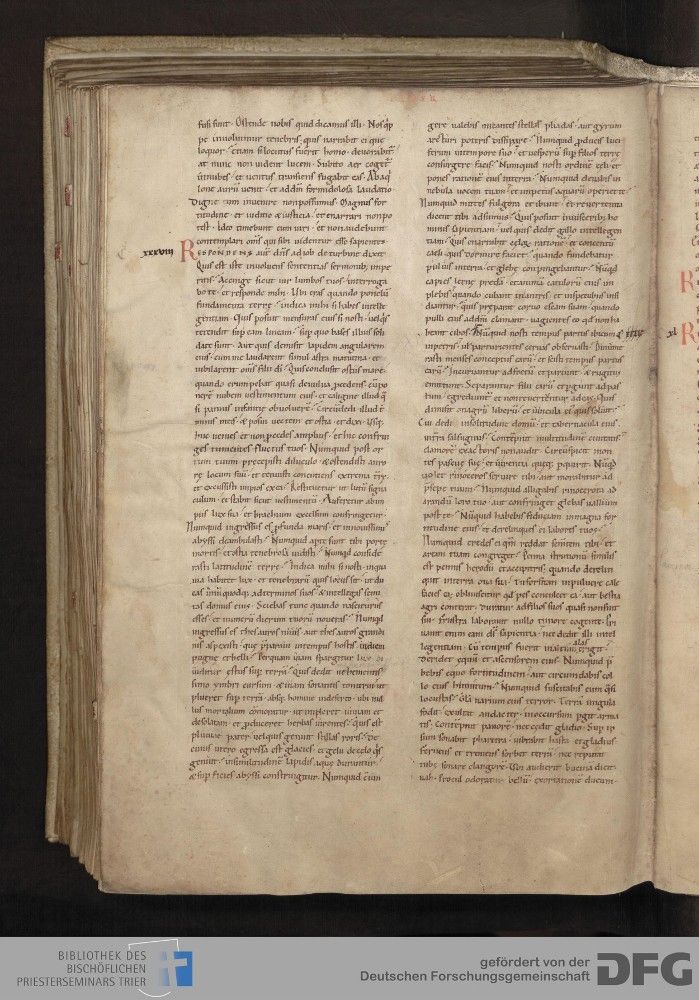 fusi sint. Ostende nobis quid dicamus illi. Nos qͥp
pe involvimur tenebris. quis narrabit ei que
loquor. etiam si locutus fuerit homo. devorabit᷑.
at nunc non vident lucem. Subito aer coget᷑
in nubes. et ventus transiens fugabit eas. Ab aq
lone aurū venit. et ad dm̄ formidolosa laudatio
Digne eum invenire non possumus. Magnus for
titudine. et iuditio & iusticia. et enarrari non po
test. Ideo timebunt eum viri. et non audebunt
contemplari om̄s qui sibi videntur esse sapientes.
xxxviii RESPONDENS aut̄ dn̄s ad iob de turbine dixit.
Quis est iste involvens sententias sermonib; impe
ritis. Accinge sicut vir lumbos tuos. interroga
bo te. et responde mihi. Ubi eras quando ponebā
fundamenta terrę. indica mihi si habes intelle
gentiam. Quis posuit mensuras eius si nosti. vel qͥs
tetendit sup eam lineam. Sup quo bases illius soli
date sunt. Aut quis demisit lapidem angularem
eius. cum me laudarent simul astra matutina. et
iubilarent om̄s filii dī. Quis conclusit ostiis mare.
quando erumpebat quasi de vulva pcedens. cū po
nerē nubem vestimentum eius. et caligine illud q̄
si pannis infantię obvolverē. Circūdedi illud t̄
minis meis. & posui vectem et ostia. et dixi. Usq;
huc venies et non procedes amplius. et hic confrin
ges tumentes fluctus tuos. Numquid post or
tum tuum precepisti diluculo. & ostendisti auro
rę locum suū. et tenuisti concutiens extrema tr̄ę.
et excussisti impios ex ea. Restituetur ut lutū signa
culum. et stabit sicut vestimentū. Auferetur ab im
piis lux sua. et brachium excelsum confringetur.
Numquid ingressus es pfunda maris. et in novissimis
abyssi deambulasti. Numquid aptę sunt tibi portę
mortis. et ostia tenebrosa vidisti. Numqͥd conside
rasti latitudinē terrę. Indica mihi si nosti. in qua
via habitet lux. et tenebrarū quis locus sit. ut du
cas unū quodq; ad terminos suos. & intellegas semi
tas domus eius. Sciebas tunc quando nasciturus
esses. et numerū dierum tuorū noveras. Numqͥd
ingressus es thesauros nivis. aut thesauros grandi
nis aspexisti. quę pparavi in tempus hostis. in diem
pugnę et belli. Per quam viam spargitur lux. di
viditur estus sup terrā. Quis dedit vehementis
simo ymbri cursum. & viam sonantis tonitrui. ut
plueret sup terrā. absq; homine in deserto. ubi nul
lus mortalium cōmoratur. ut impleret inviam et
desolatam. et pduceret herbas virentes. Quis est
pluvię pater. vel quis genuit stillas roris. De
cuius utero egressa est glacies. et gelu de cęlo qͥs
genuit. in similitudinē lapidis aquę durantur.
& supficies abyssi constringitur. Numquid c̄iun
gere valebis micantes stellas pliadas. aut gyrum
arcturi poteris dissipare. Numquid pducis luci
ferum in tempore suo. et vesperū sup filios terrę
consurgere facis. Numquid nosti ordinē cęli. et
pones rationē eius in terra. Numquid elevabis in
nebula vocem tuam. et impetus aquarū operiet te.
Numquid mittes fulgura. et ibunt. et revertentia
dicent tibi adsumus. Quis posuit in visceribꝫ ho
minis sapientiam. vel quis dedit gallo intellegen
tiam. Quis enarrabit cęlorꝫ rationē. et concentū
cæli quis dormire faciet. quando fundebatur
pulvis in terra. et glebę compingebantur. Nūqͥd
capies leęnę pręda. et animā catulorū eius im
plebis. quando cubant in antris. et in specubus insi
diantur. quis preparat corvo escam suam. quando
pulli eius ad dm̄ clamant. vagientes eo qd́ non ha
beant cibos. Nūquid nosti tempus partus ibicum xxxix
in petris. vel parturientes cervas observasti. Dinume
rasti menses conceptus earū. et scisti tempus partus
earū. Incurvantur ad fetū et pariunt. & rugitus
emittunt. Separantur filii earū et pgunt ad pas
tum. egrediunt᷑ et non revertentur ad eas. Quis
dimisit onagrū liberū. et vincula ei quis solvit.
Cui dedi in solitudine domū. et tabernacula eius
in tr̄ra salsuginis. Contēpnit multitudinē civitatis.
clamorē exactoris non audit. Circūspicit mon
tes pascuę suę. et virentia quęq; pquirit. Nūqd́
volet rinoceros servire tibi. aut morabitur ad
psepe tuum. Numquid alligabis rinocerota ad
arandū loro tuo. aut confringet glebas vallium
post te. Nūquid habebis fiduciam in magna for
titudine eius. et derelinques ei labores tuos.
Numquid credes ei qm̄ reddat sem̄tem tibi. et
aream tuam congreget. Penna strutionū similis
est pennis herodii et accipitris. quando derelin
quit in terra ova sua. Tu forsitan in pulvere cale
facies ea. obliviscitur qd́ pes conculcet ea. aut bestia
agri conterat. Duratur ad filios suos quasi non sint
sui. frustra laboravit nullo timore cogente. Pri
vavit enim eam ds̄ sapientia. nec dedit illi intel
legentiam. Cū tempus fuerit in altum alas erigit.
deridet equū et ascensorem eius. Numquid p̄
bebis equo fortitudinem. aut circumdabis col
lo eius hinnitum. Numquid suscitabis eum q̄si
locustas. Gl̄a narium eius terror. Terrā ungula
fodit. exultat audacter. in occursum pgit arma
tis. Contēpnit pavorē. nec cedit gladio. Sup ip
sum sonabit pharetra. vibrabit hasta et gladius.
Fervens et fremens sorbet terrā. nec reputat
tubę sonare clangorē. Ubi audierit bucina dicit
vah. Procul odoratur bellū. exortationē ducum.
R
xl R
BIBLIOTHEK DES
BISCHÖFLICHEN
PRIESTERSEMINARS TRIER
gefördert von der
Deutschen Forschungsgemeinschaft
DFG